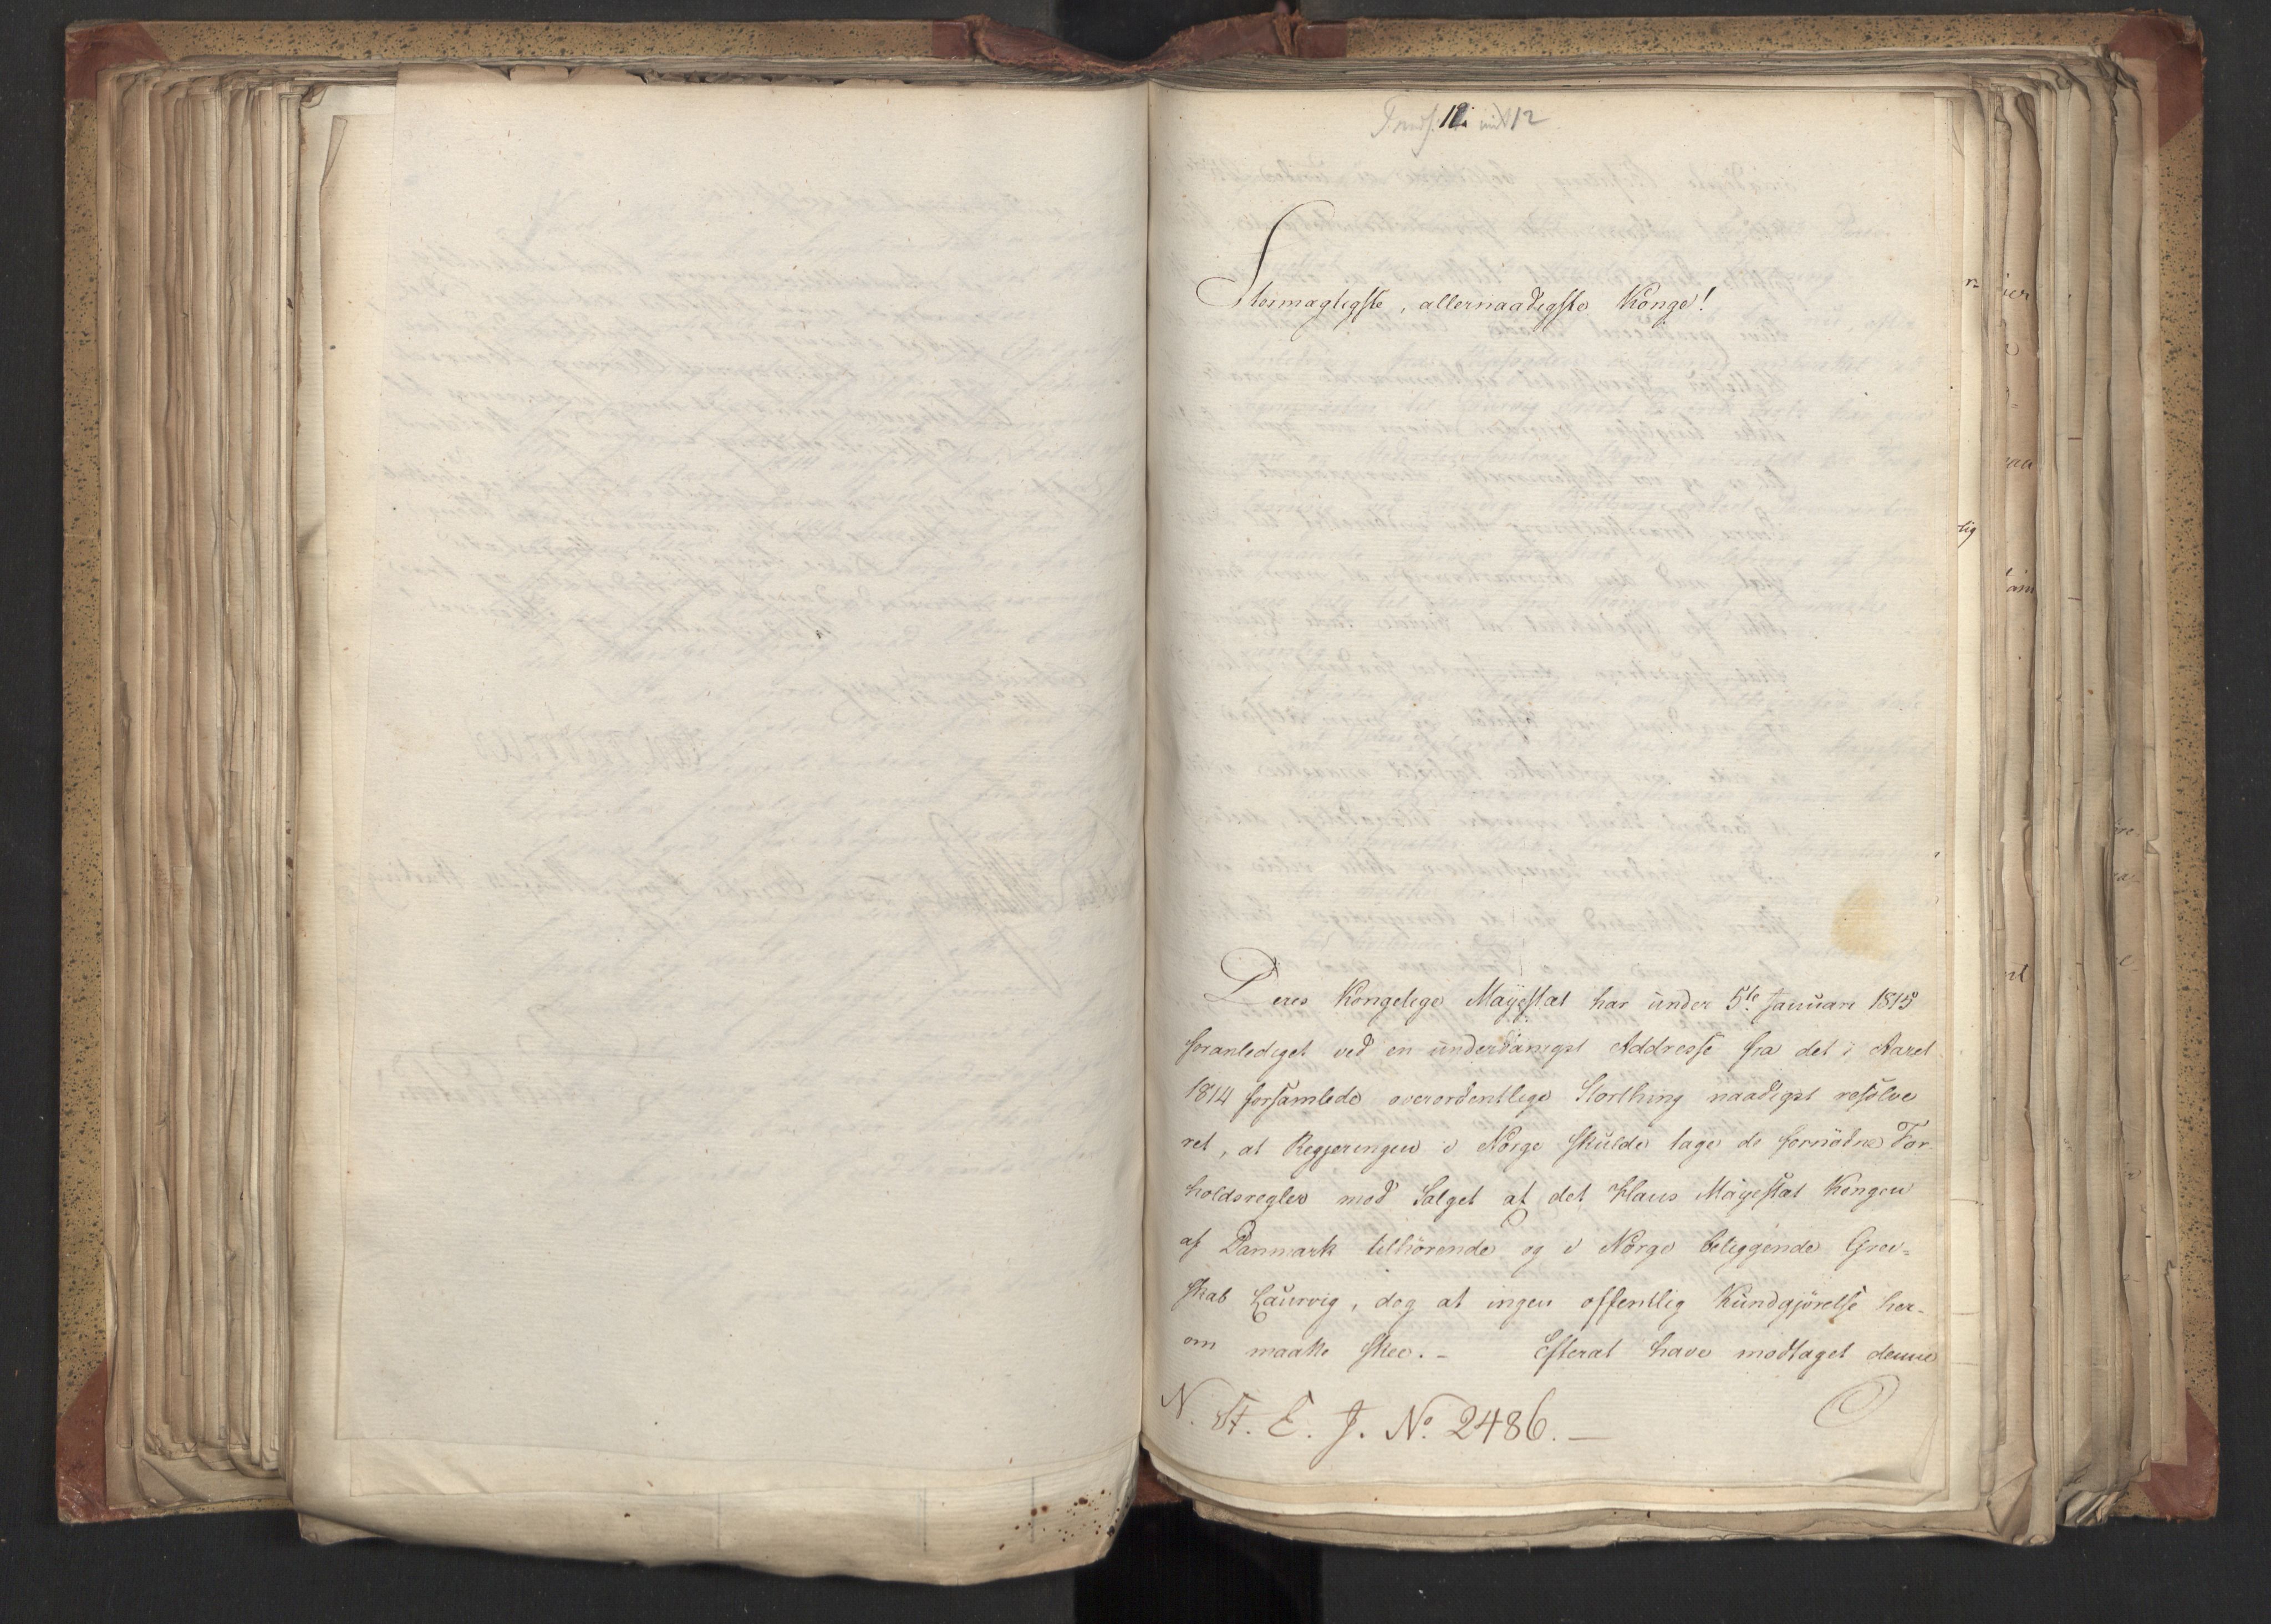 12
Stormægtigste, allernaadigste Konge!
Deres Kongelige Majestæt har under 5te Januari 1815
foranlediget ved en underdanigst Addresse fra det i Aaret
1814 forsamlede overordentlige Storthing naadigst resolve
ret, at Regjeringen i Norge skulde tage de fornödne For
holdsregler mod Salget af det Hans Majestæt Kongen
af Danmark tilhörende og i Norge beliggende Grev=
skab Laurvig, dog at ingen offentlig Kundgjörelse her-
om maatte skee. - Efterat have modtaget denne
N. St. E. J. No. 2486. —